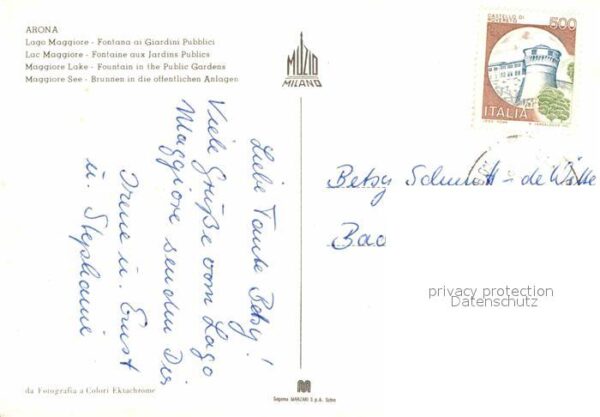 ARONA
Lago Maggiore - Fontana ai Giardini Pubblici
Lac Maggiore - Fontaine aux Jardins Publics
Maggiore Lake - Fountain in the Public Gardens
Maggiore See - Brunnen in die offentlichen Anlagen
MUZIO
MILANO
CASTELLO DI
ROVERETO
500
ITALIA
Liebe Tante Betsy!
Viele Grüße vom Lago
Maggiore senden Dir
Irene u. Ernst
u. Stephanie
Betsy Schmitt-de Witte
Bad
privacy protection
Datenschutz
da Fotografia a Colori Ektachrome
Sagoma MARZARI S.p.A. Schio